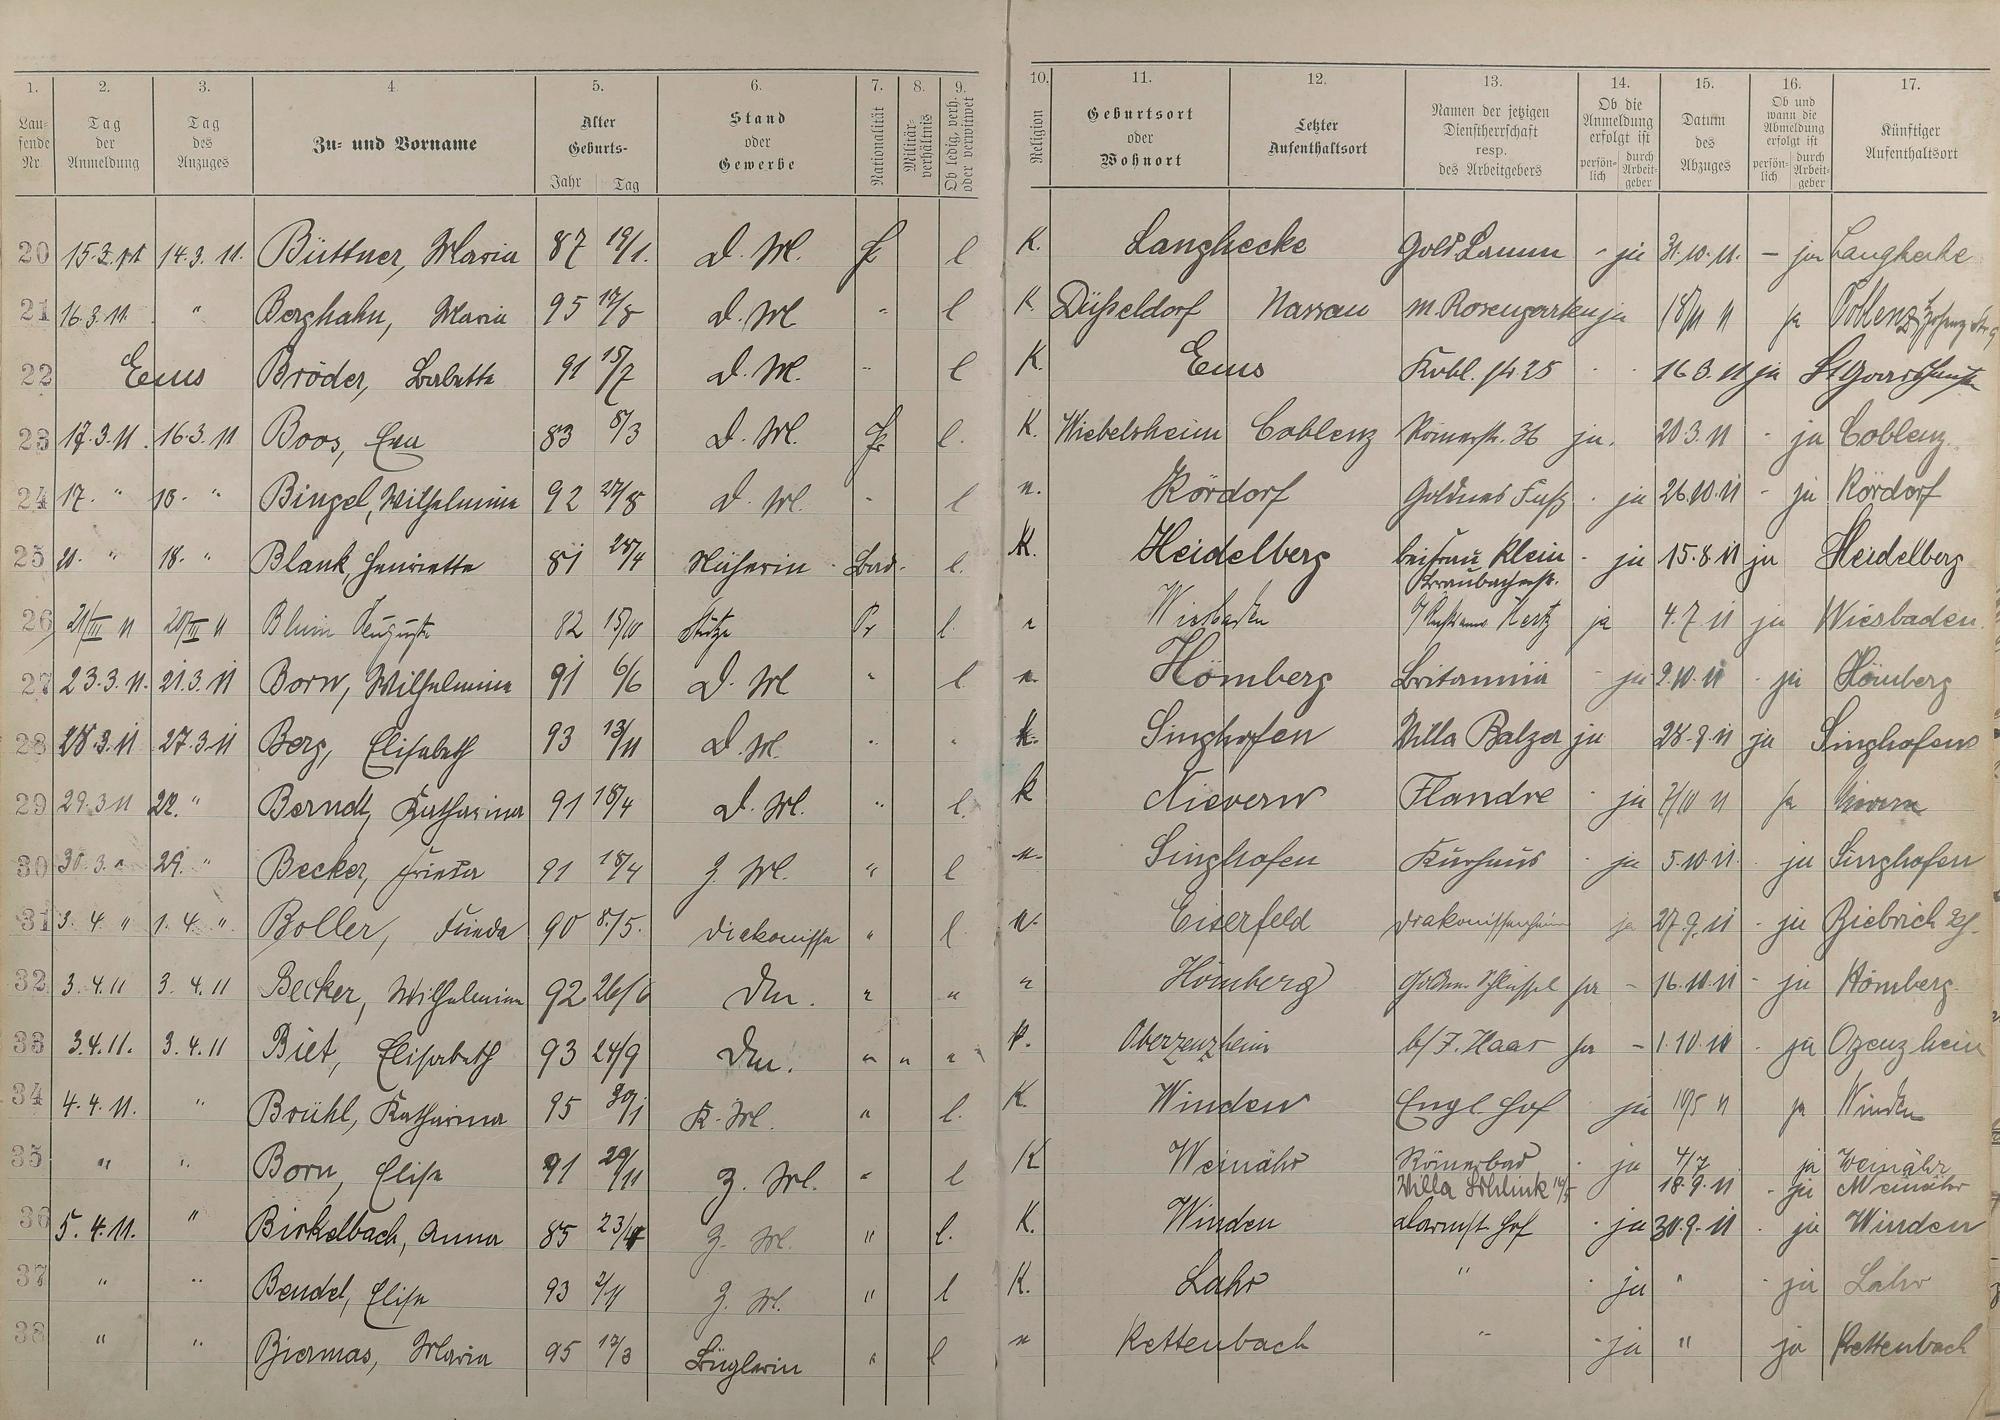 1. 2. 3. 4 5. 6. 7. 8. 9. 10. 11. 12. 13. 14. 15. 16. 17.
Lau-
fende
Nr
Tag
der
Anmeldung
Tag
des
Anzuges
Zu- und Vorname
Alter
Geburts-
Jahr Tag
Stand
oder
Gewerbe
Nationalität
Militär-
verhältnis
Ob ledig, verh.
oder verwitwet
Religion
Geburtsort
oder
Wohnort
Letzter
Aufenthaltsort
Namen der jetzigen
Dienstherrschaft
resp.
des Arbeitgebers
Ob die
Anmeldung
erfolgt ist
persön-
lich
durch
Arbeit-
geber
Datum
des
Abzuges
Ob und
wann die
Abmeldung
erfolgt ist
persön-
lich
durch
Arbeit-
geber
Künftiger
Aufenthaltsort
20 15.3.11 14.3.11. Büttner, Maria 87 19/1. D. M. Pr l K. Langhecke Gold Lamm - ja 31.10.11. - ja Langhecke
21 16.3.11 " Berghahn, Maria 95 17/8 D. M " l K Düsseldorf Nassau M. Rosengarten ja 18/11 11 ja Coblenz
22 Ems Bröder, Babette 91 15/7 D. M. " l K. Ems 16.3.11 ja St Goarshausen
23 17.3.11. 16.3.11 Boos, Eva 83 8/3 D. M. Pr l. K. Wiebelsheim Coblenz Römerstr. 36 ja. 20.3.11 - ja Coblenz.
24 17. " 18. " Bingel, Wilhelmine 92 27/8 D. M. " l n. Kördorf Goldnes Faß - ja 26.10.11 - ja Kördorf
25 21. " 18. " Blank, Henriette 81 28/4 Näherin Bad. l. K. Heidelberg bei Frau Klein - ja 15.8.11 ja Heidelberg
Braubacherstr.
26 21/III 11 20/III 11 Blum Auguste 82 15/10 Stütze Pr l. " Wiesbaden Hertz ja 4.7.11 ja Wiesbaden.
27 23.3.11. 21.3.11 Born, Wilhelmine 91 6/6 D. M " l n. Hömberg Britannia - ja 2.10.11 - ja Hömberg
28 28.3.11 27.3.11 Berg, Elisabeth 93 13/11 D. M. " " k. Singhofen Villa Balzer ja 28.9.11 ja Singhofen
29 29.3.11 22. " Berndt, Katharina 91 18/4 D. M. " l. k Nievern Flandre - ja 7/10 11 ja Nievern
30 30.3. " 29. " Becker, Frieda 91 18/4 Z. M. " l n. Singhofen Kurhaus - ja 5.10.11 - ja Singhofen
31 3. 4. " 1. 4. " Boller, Frieda 90 8/5. Diakonisse " l n. Eiserfeld Diakonissenheim ja 27.9.11 - ja Biebrich
32 3.4.11 3.4.11 Becker, Wilhelmine 92 26/6 Dm. " " " Hömberg Goldn. Schlüssel ja - 16.10.11 - ja Hömberg
33 3.4.11. 3.4.11 Biet, Elisabeth 93 24/9 Dm. " " " Oberzeuzheim b/ J. Haas ja - 1.10.11 - ja Ozeuzheim
34 4.4.11. " Brühl, Katharina 95 30/1 K. M. " l. K. Winden Engl. Hof ja 10/5 11 ja Winden
35 " " Born, Elise 91 29/11 Z. M. " l K Weinähr Römerbad - ja 4/7 ja Weinähr
Villa 18.9.11 - ja Weinähr
36 5.4.11. " Birkelbach, Anna 85 23/4 Z. M. " l. K. Winden Darmst. Hof - ja 30.9.11 - ja Winden
37 " " Bendel, Elise 93 2/11 Z. M. " l K. Lahr " - ja " - ja Lahr
38 " " Biermas, Maria 95 17/3 Büglerin " l n Kettenbach " - ja " ja Kettenbach